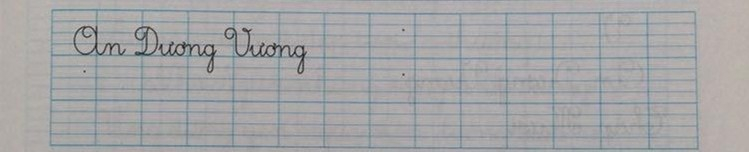 An Dương Vương